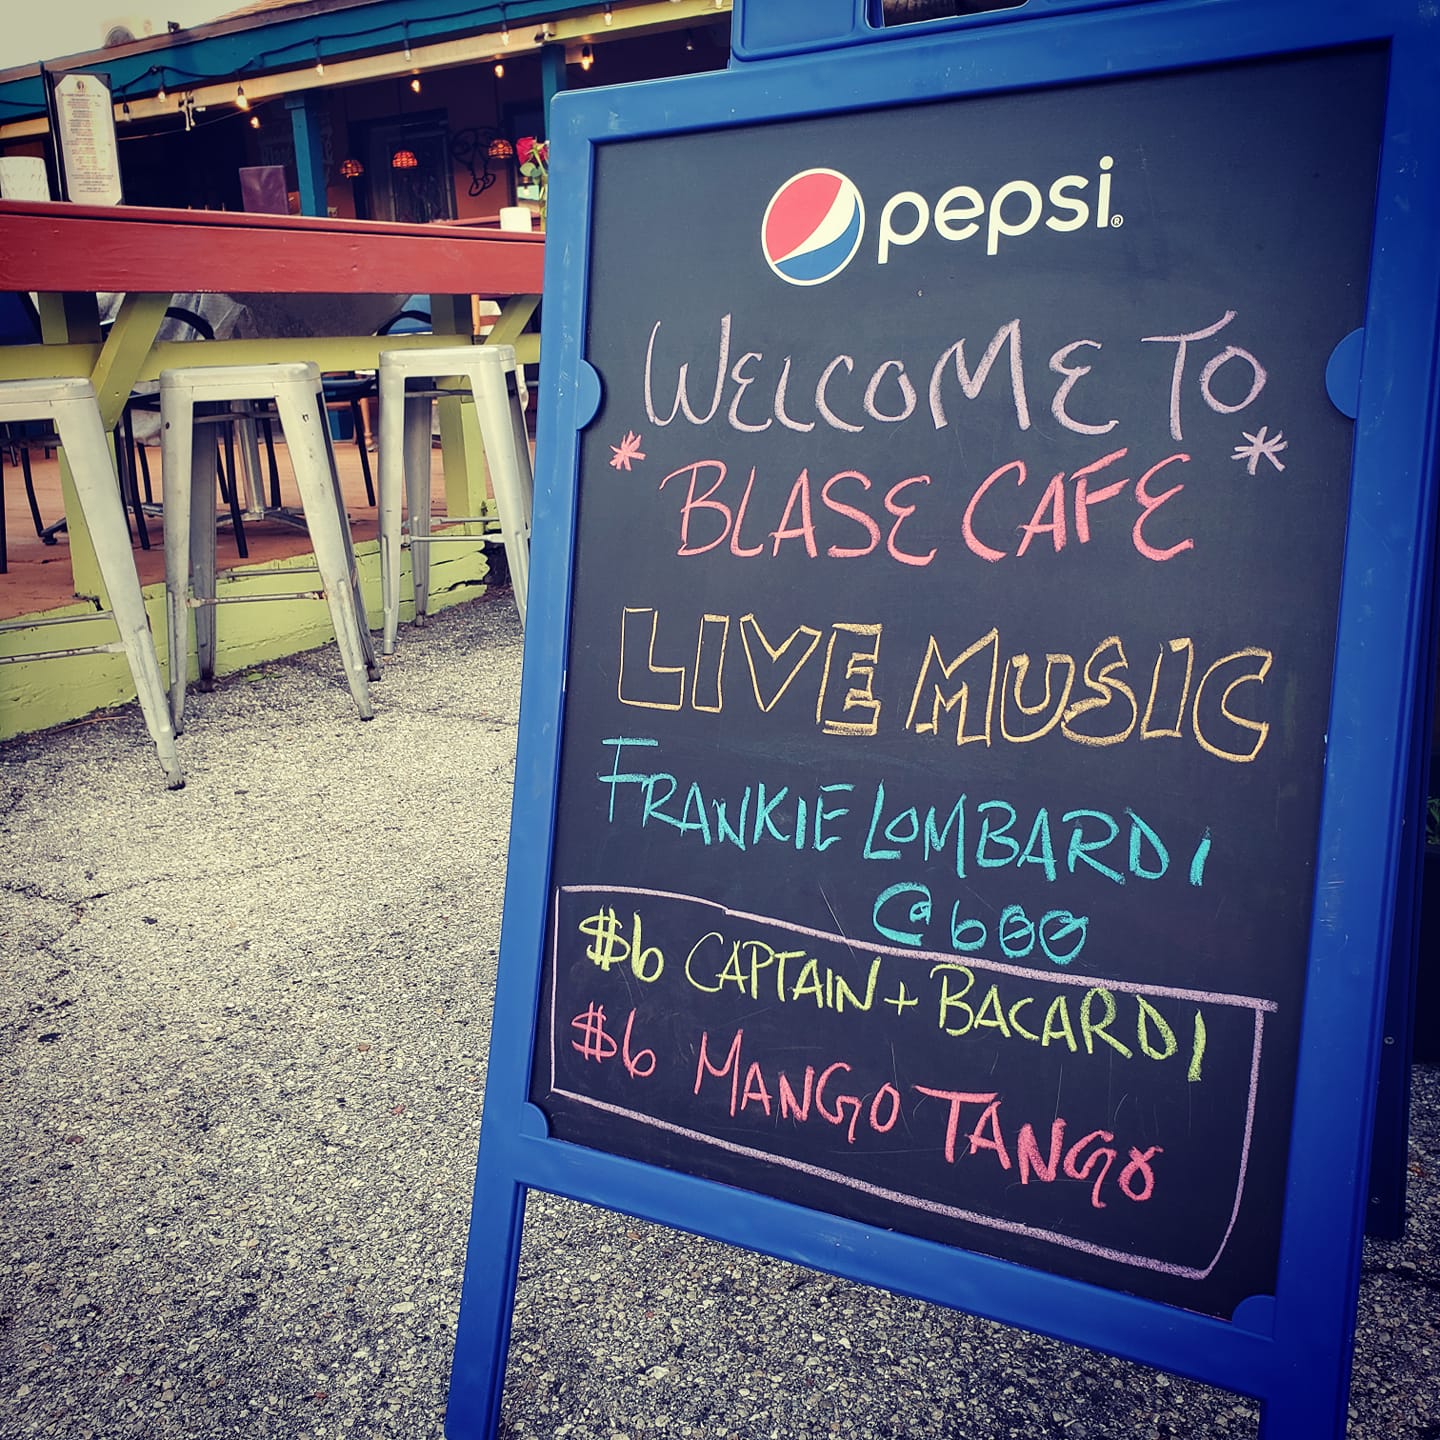 pepsi®
WELCOME TO
* BLASE CAFE *
LIVE MUSIC
FRANKIE LOMBARDI
@ 600
$6 CAPTAIN + BACARDI
$6 MANGO TANGO